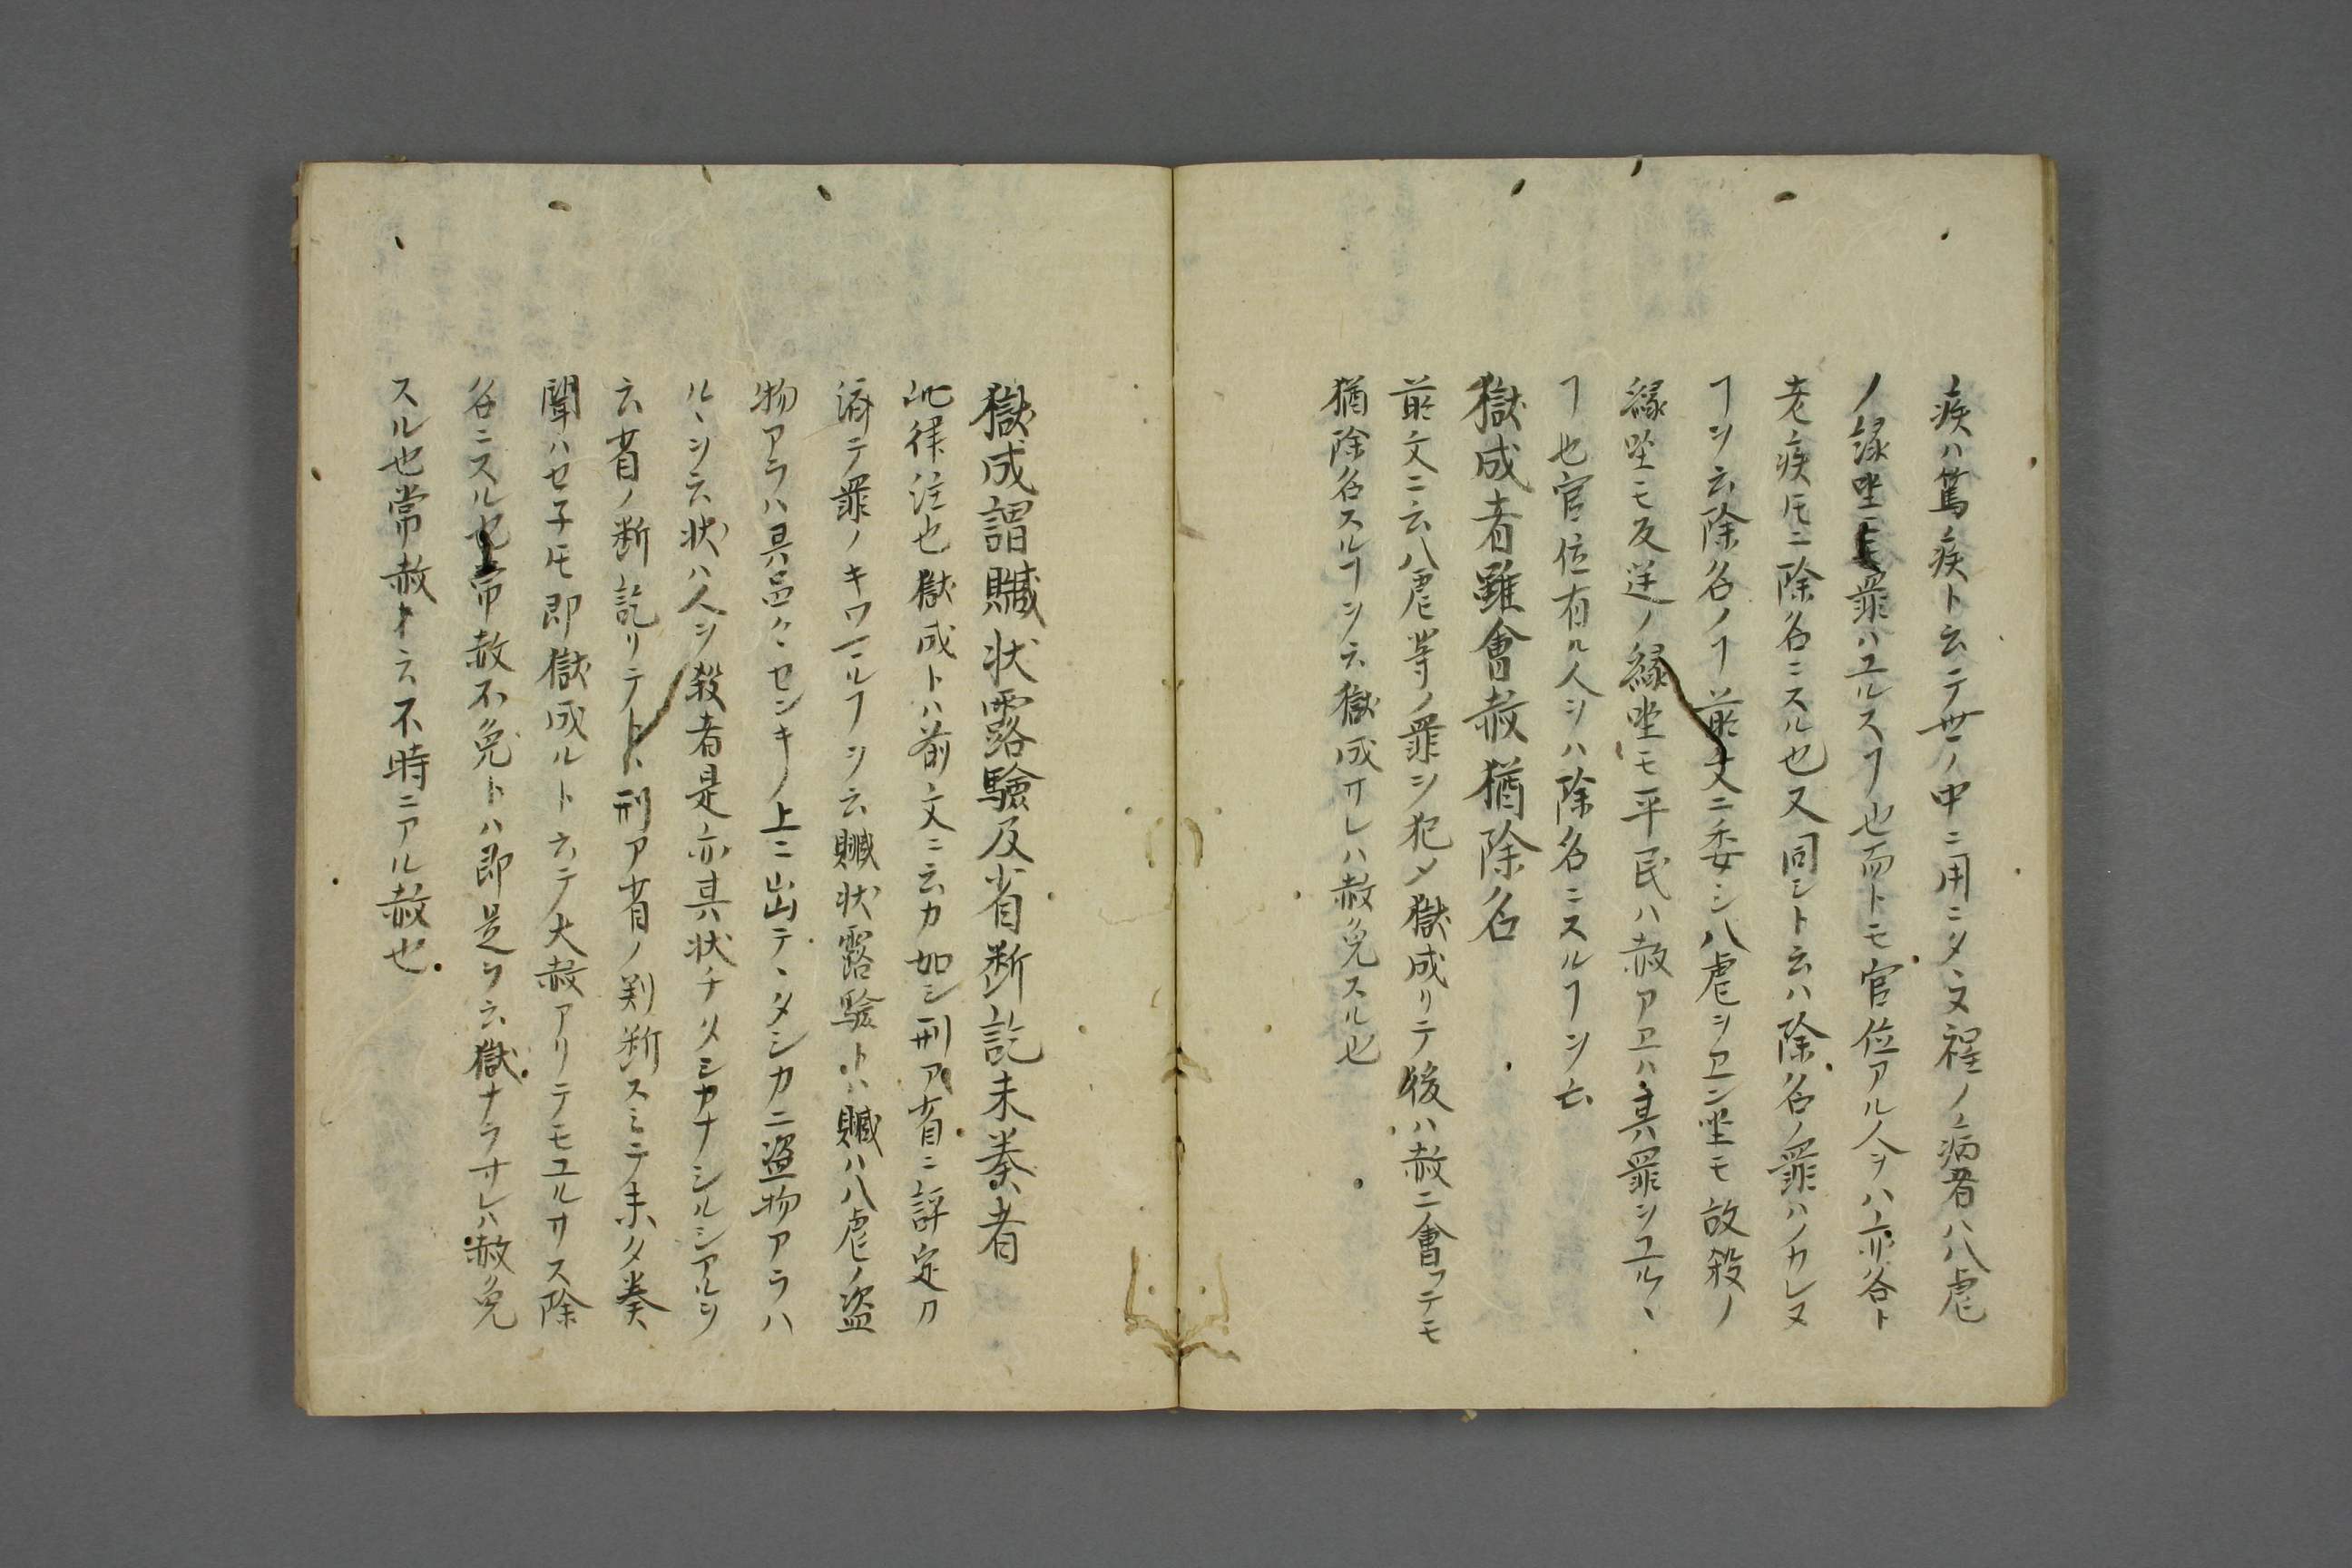 疾ハ篤疾ト云テ世ノ中ニ用ニタヽヌ程ノ病者ハ八虐
ノ縁坐モ罪ハユルスヿ也而トモ官位アル人ヲハ亦各ト
老疾氏ニ除名ニスル也又同シト云ハ除名ノ罪ハノカレヌ
ヿヲ云除名ノヿ前文ニ委シ八虐ヲヱン坐モ故殺ノ
縁坐モ反逆ノ縁坐モ平民ハ赦アヱハ其罪ヲユルヽ
ヿ也官位有ル人ヲハ除名ニスルヿヲ云
獄成者雖會赦猶除名
前文ニ云八虐等ノ罪ヲ犯メ獄成リテ後ハ赦ニ會フテモ
猶除名スルヿヲ云獄成サレハ赦免スル也
獄成謂贓状露驗及省断訖未奏者
此律注也獄成トハ前文ニ云カ如シ刑ア省ニ評定カ
済テ罪ノキワマルヿヲ云贓状露驗トハ贓ハ八虐ノ盗
物アラハ具品々センキノ上ニ出テヽタシカニ盗物アラハ
ルヽヲ云状ハ人ヲ殺者是亦其状チメシカナシルシアルヲ
云省ノ断訖リテトハ刑ア省ノ判断スミテ未タ奏
聞ハセ子氏即獄成ルト云テ大赦アリテモユルサス除
名ニスル也常赦不免トハ即是ヲ云獄ナラサレハ赦免
スル也常赦ト云不時ニアル赦也